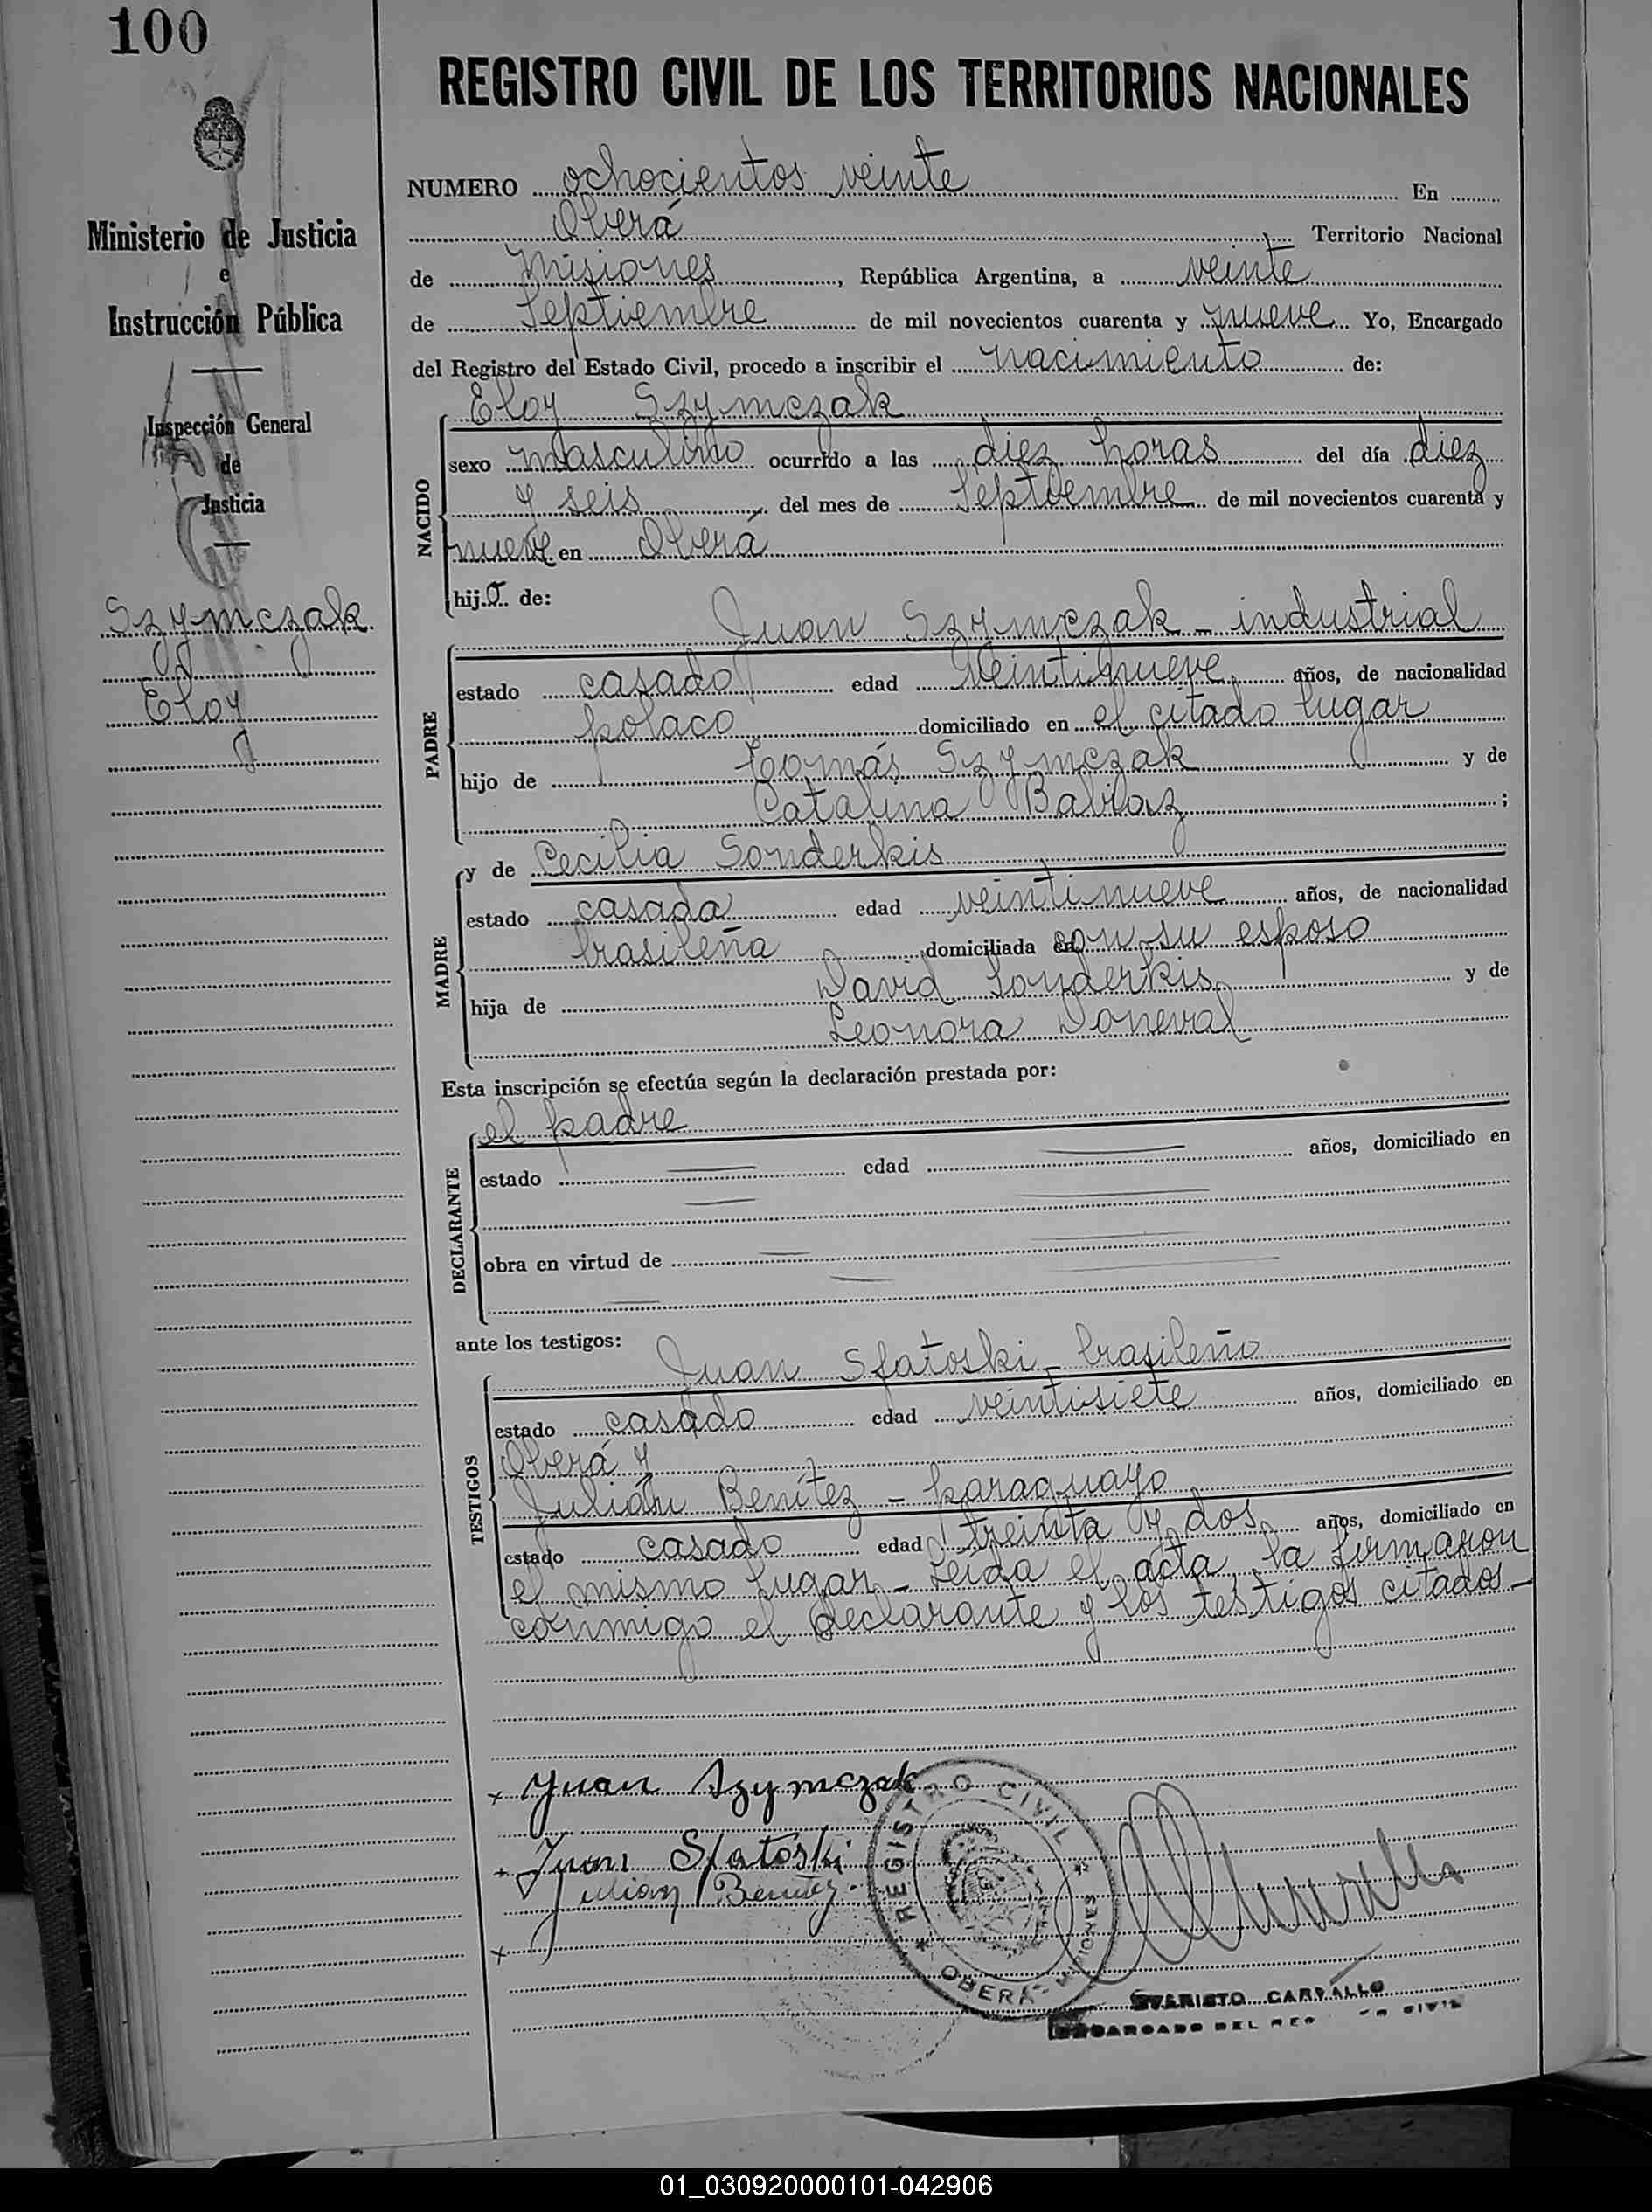 100
REGISTRO CIVIL DE LOS TERRITORIOS NACIONALES
Ministerio de Justicia
e
Instrucción Pública
Inspección General
de
Justicia
Szymczak
Eloy
NUMERO ochocientos veinte En
Oberá Territorio Nacional
de Misiones, República Argentina, a veinte
de Septiembre de mil novecientos cuarenta y nueve Yo, Encargado
del Registro del Estado Civil, procedo a inscribir el nacimiento de:
Eloy Szymczak
NACIDO
sexo masculino ocurrido a las diez horas del día diez
y seis del mes de Septiembre de mil novecientos cuarenta y
nueve en Oberá
hijo de:
Juan Szymczak - industrial
PADRE
estado casado edad veintinueve años, de nacionalidad
polaco domiciliado en el citado lugar
hijo de Tomás Szymczak y de
Catalina Bablaz;
MADRE
y de Cecilia Sonderkis
estado casada edad veintinueve años, de nacionalidad
brasileña domiciliada con su esposo
hija de David Sonderkis y de
Leonora Doneval
Esta inscripción se efectúa según la declaración prestada por:
el padre
DECLARANTE
estado edad años, domiciliado en
obra en virtud de
ante los testigos:
Juan Sfatoski - brasileño
TESTIGOS
estado casado edad veintisiete años, domiciliado en
Oberá y
Julián Benítez - paraguayo
estado casado edad treinta y dos años, domiciliado en
el mismo lugar - Leída el acta, la firmaron
conmigo el declarante y los testigos citados -
x Juan Szymczak
x Juan Sfatoski
Julian Benitez
x
REGISTRO CIVIL
OBERÁ - MISIONES
EVARISTO CARVALLO
ENCARGADO DEL REG CIVIL
01_030920000101-042906